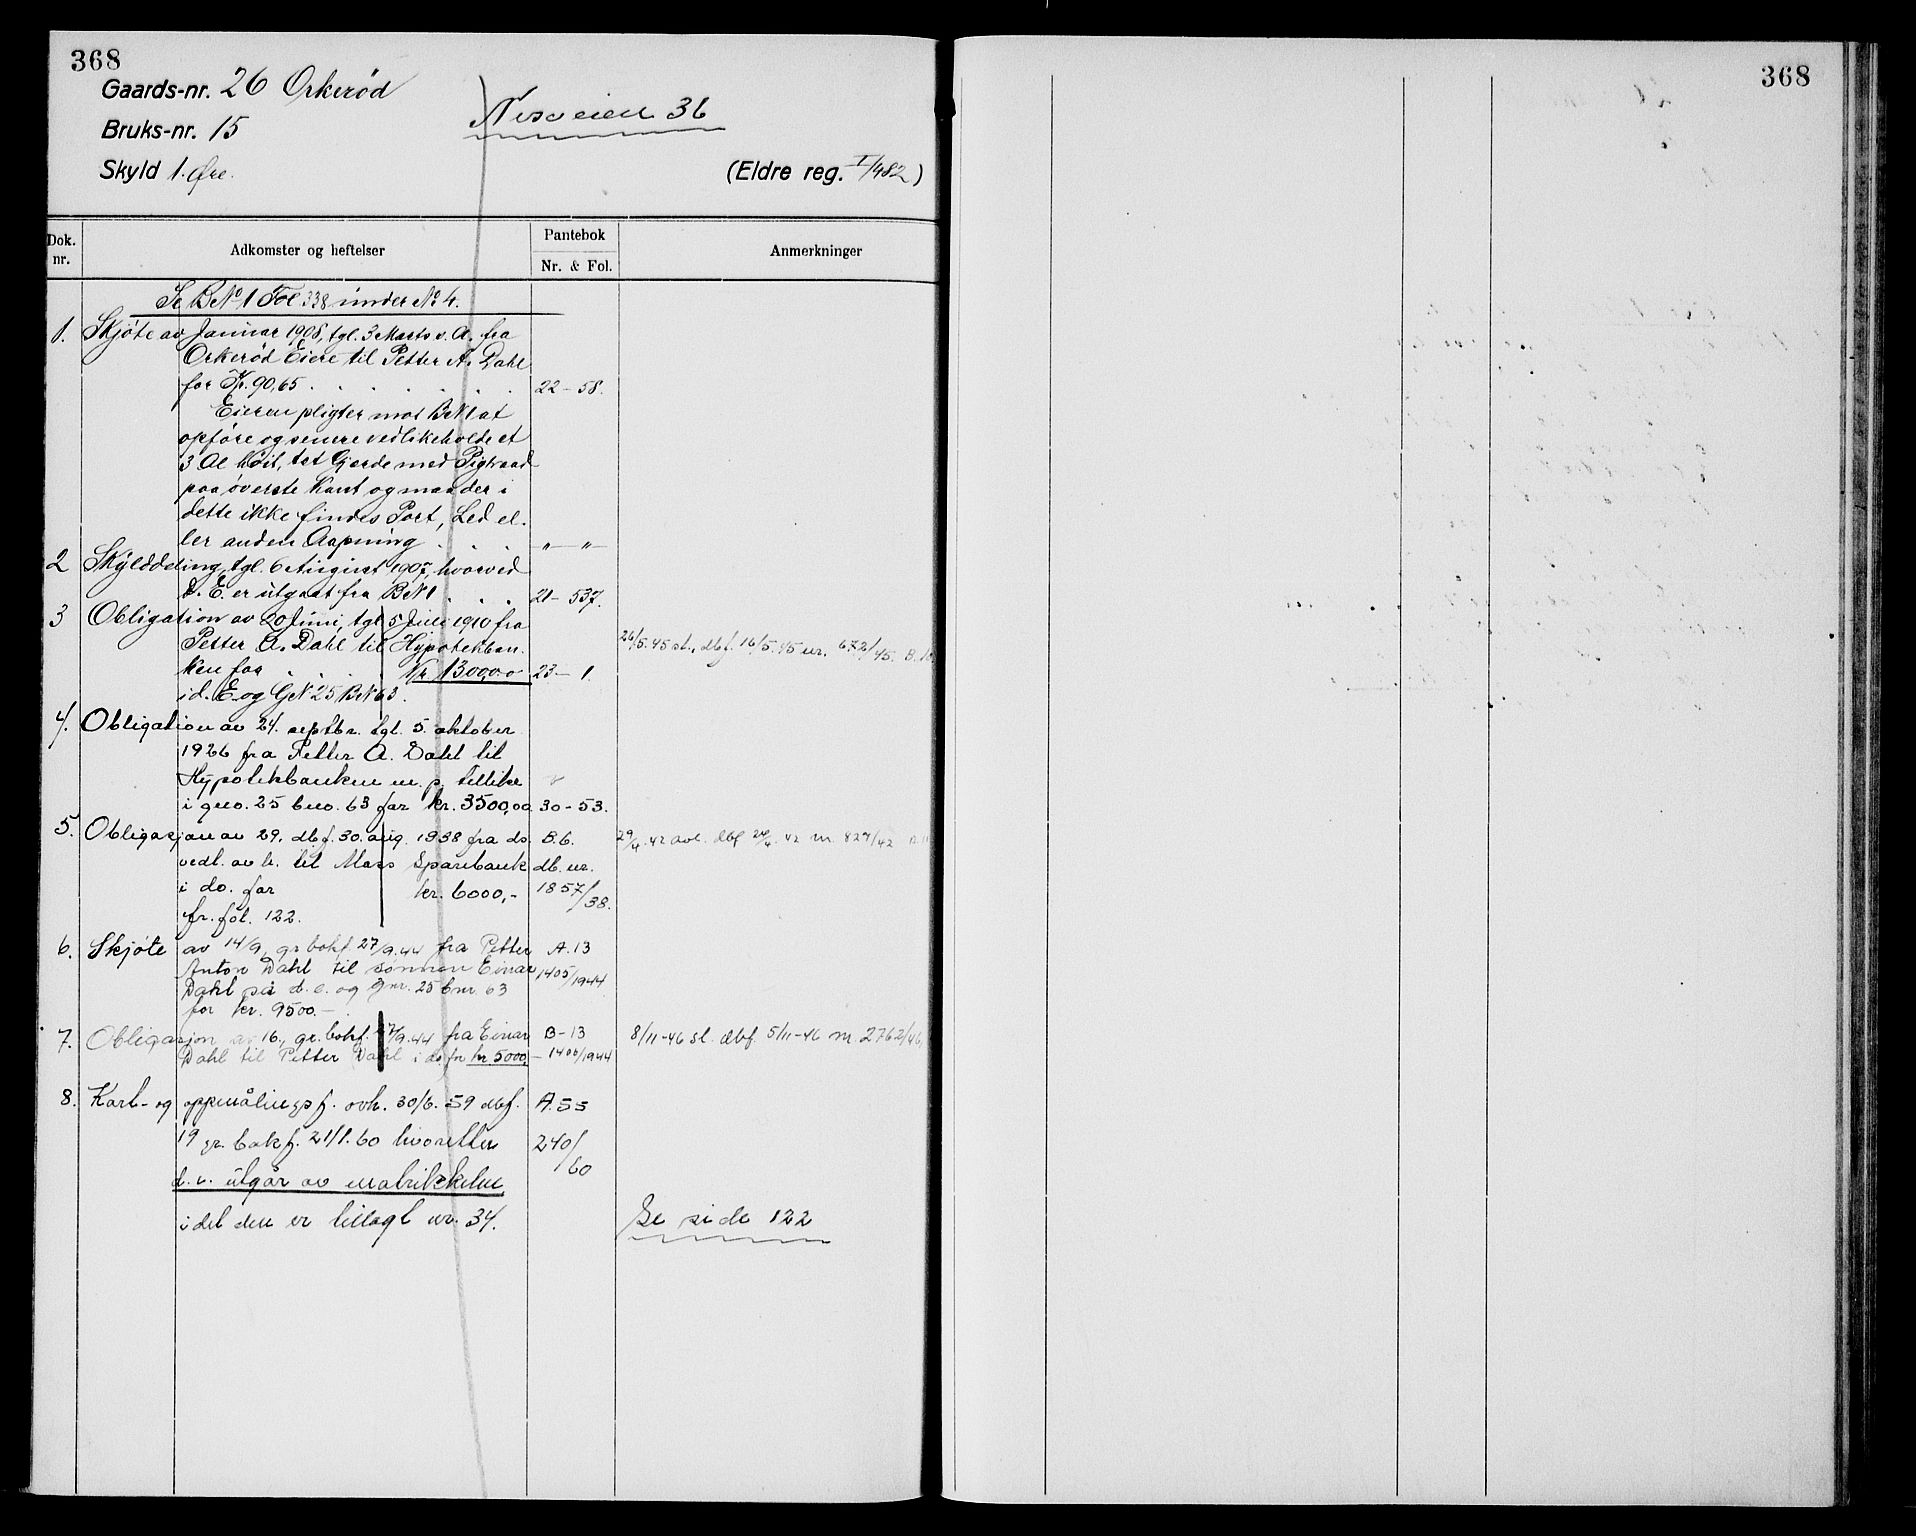 368
Gaards-nr. 26 Orkerød
Nesveien 36
Bruks-nr. 15
Skyld 1. Øre.
(Eldre reg. I/482)
Dok. nr.
Adkomster og heftelser
Pantebok
Nr. & Fol.
Anmerkninger
Se BN° 1 Fol 338 under N° 4.
1. Skjøte av Januar 1908, tgl. 3 Marts s. A. fra
Orkerød Eiere til Petter A. Dahl
for Kr. 90,65 . . . . . . 22 - 58.
Eieren pligter mot BN 1 at
opføre og senere vedlikeholde et
3 Al høit, tæt Gjerde med Pigtraad
paa øverste Kant og maa der i
dette ikke findes Port, Led el-
ler anden Aapning . . . „ - „ -
2 Skylddeling, tgl. 6 August 1907, hvorved
d. E. er utgaat fra BN 1 . . . 21 - 537.
3 Obligation av 20 Juni, tgl 5 Juli 1910 fra
Petter A. Dahl til Hypotekban- 26/5.45 sl., dbf. 16/5.45 nr. 672/45. B.
ken for . . . Kr. 1300,00 23 - 1.
i d. E. og GN 25 BN 63.
4. Obligation av 24. septbr. tgl. 5. oktober
1926 fra Petter A. Dahl til
Hypotekbanken m. p. tillike
i gno. 25 bno. 63 for kr. 3500,00 30 - 53.
5. Obligasjon av 29. dbf. 30. aug. 1938 fra do. B. 6. 29/4.42 avl. dbf 24/4.42 nr. 827/42
vedl. av h. til Moss Sparebank db. nr.
i do. for kr. 6000,- 1857/38.
fr. fol. 122.
6. Skjøte av 14/9, gr. bokf. 27/9.44 fra Petter A. 13
Anton Dahl til sønnen Einar 1405/1944
Dahl på d. e. og gnr. 25 bnr. 63
for kr. 9500.-
7. Obligasjon av 16., gr. bokf. 27/9.44 fra Einar B - 13 8/11-46 sl. dbf. 5/11-46 nr. 2762/46,
Dahl til Petter Dahl i do. for kr. 5000,- 1406/1944
8. Kart- og oppmålingsf. ovh. 30/6. 59 dbf. A. 55
19 gr. bokf. 21/1. 60 hvoretter 240/60
d. e. utgår av matrikkelen
i det den er tillagt nr. 34. Se side 122
368